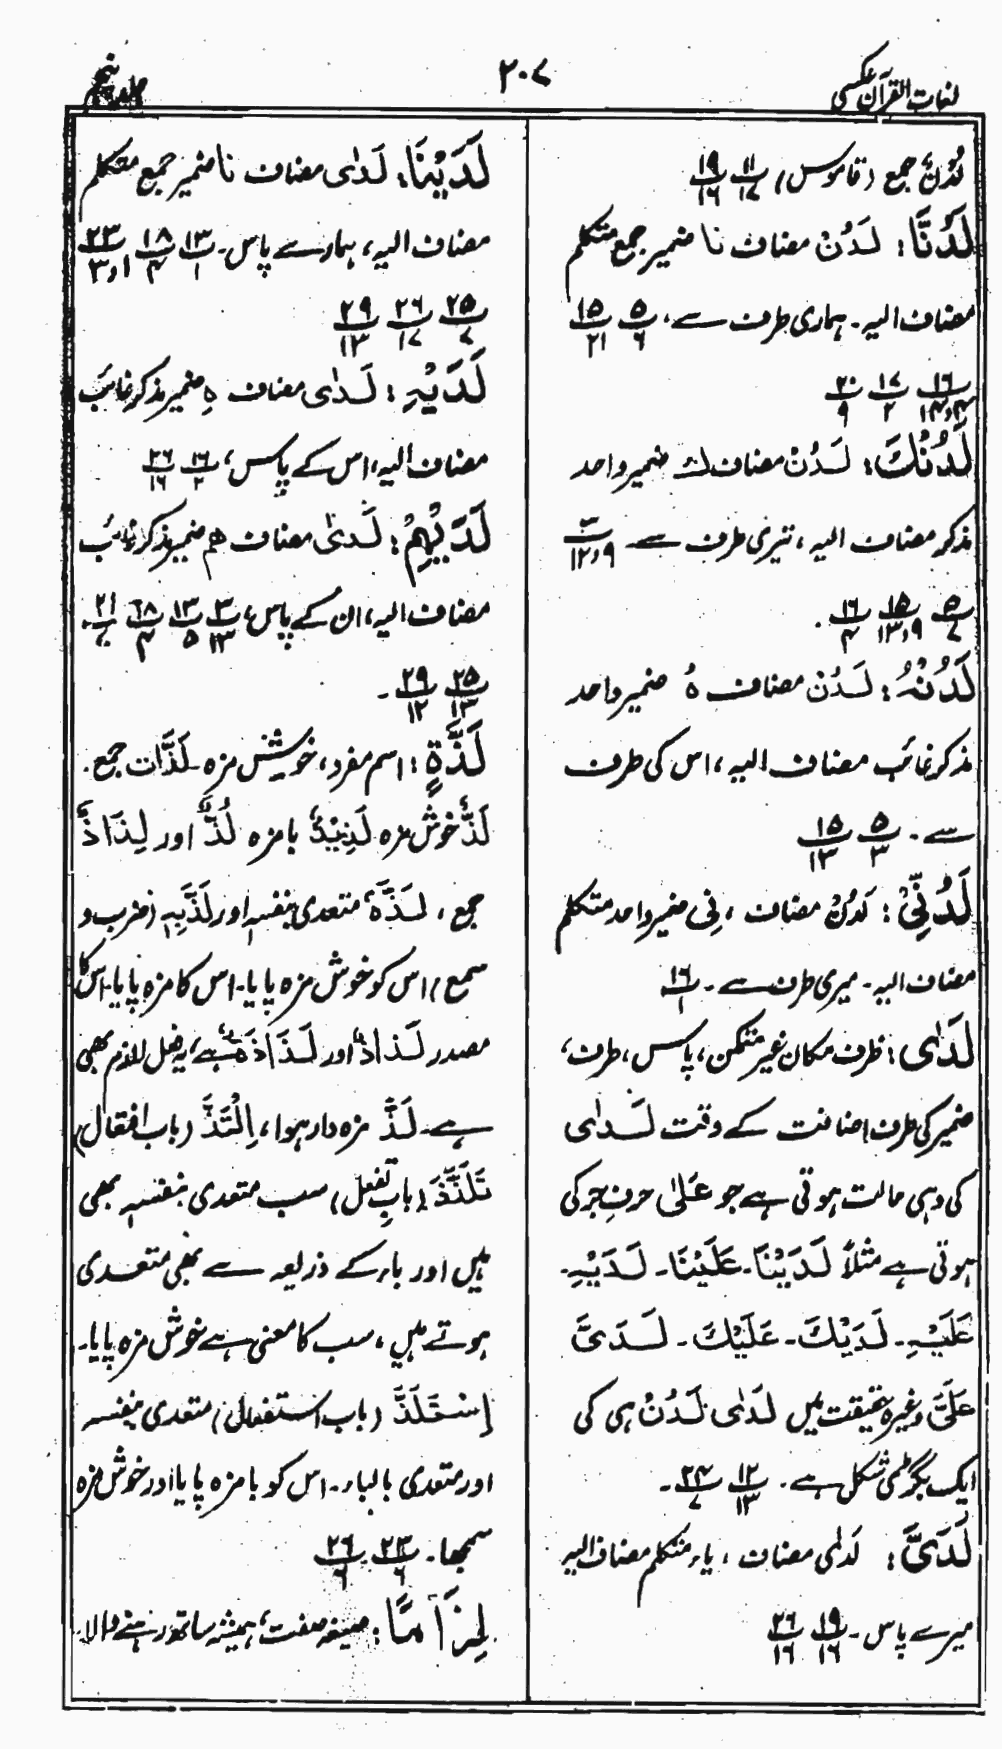 لغات القرآن عکسی
۲۰۷
جلد پنجم
لُدُنٌ جمع (قاموس) ۱۱/۱۷ ۱۹/۱۶
لَدُنَّا: لَدُنْ مضاف نا ضمیر جمع متکلم
مضاف الیہ۔ ہماری طرف سے، ۵/۶ ۱۵/۲۱
۱۶/۱۴،۴ ۱۷/۲ ۲۰/۹
لَدُنْكَ: لَدُنْ مضاف ك ضمیر واحد
مذکر مضاف الیہ، تیری طرف سے ۳/۱۲،۹
۵/۷ ۱۵/۱۳،۹ ۱۶/۴۔
لَدُنْہُ: لَدُنْ مضاف ہُ ضمیر واحد
مذکر غائب مضاف الیہ، اس کی طرف
سے۔ ۵/۳ ۱۵/۱۳
لَدُنِّیْ: لَدُنْ مضاف، نِی ضمیر واحد متکلم
مضاف الیہ۔ میری طرف سے۔ ۱۶/۱
لَدٰی: ظرف مکان غیر متمکن، پاس، طرف،
ضمیر کی طرف اضافت کے وقت لَدٰی
کی وہی حالت ہوتی ہے جو عَلٰی حرفِ جر کی
ہوتی ہے مثلاً لَدَیْنَا۔ عَلَیْنَا۔ لَدَیْہِ۔
عَلَیْہِ۔ لَدَیْكَ۔ عَلَیْكَ۔ لَدَیَّ
عَلَیَّ وغیرہ حقیقت میں لَدٰی لَدُنْ ہی کی
ایک بگڑی شکل ہے۔ ۱۲/۱۳ ۲۴/۷۔
لَدَیَّ: لَدٰی مضاف، یاء متکلم مضاف الیہ
میرے پاس۔ ۱۹/۱۶ ۲۶/۱۶
لَدَیْنَا: لَدٰی مضاف نا ضمیر جمع متکلم
مضاف الیہ، ہمارے پاس۔ ۱۳/۱ ۱۸/۴ ۲۳/۳،۱
۲۵/۷ ۲۶/۱۷ ۲۹/۱۳
لَدَیْہِ: لَدٰی مضاف ہِ ضمیر مذکر غائب
مضاف الیہ، اس کے پاس، ۱۶/۲ ۲۶/۱۶
لَدَیْہِمْ: لَدٰی مضاف ھم ضمیر مذکر غائب
مضاف الیہ، ان کے پاس، ۳/۱۳ ۱۳/۵ ۱۸/۴ ۲۱/۷
۲۵/۱۳ ۲۹/۱۲۔
لَذَّۃٍ: اسم مفرد، خوش مزہ۔ لَذَّات جمع۔
لَذٌّ خوش مزہ لَذِیْذٌ بامزہ لُذٌّ اور لِذَاذٌ
جمع، لَذَّہٗ متعدی بنفسہ اور لَذَّبِہٖ (ضرب و
سمع) اس کو خوش مزہ پایا۔ اس کا مزہ پایا۔ اس کا
مصدر لَذاذًا اور لَذَاذَۃً ہے، یہ فعل لازم بھی
ہے۔ لَذَّ مزہ دار ہوا، اِلْتَذَّ (باب افتعال)
تَلَذَّذَ (بابِ تفعل) سب متعدی بنفسہ بھی
ہیں اور باء کے ذریعہ سے بھی متعدی
ہوتے ہیں، سب کا معنی ہے خوش مزہ پایا۔
اِسْتَلَذَّ (باب استفعال) متعدی بنفسہ
اور متعدی بالباء۔ اس کو بامزہ پایا اور خوش مزہ
سمجھا۔ ۲۳/۶ ۲۶/۶
لِزَامًا: صیغہ صفت، ہمیشہ ساتھ رہنے والا۔